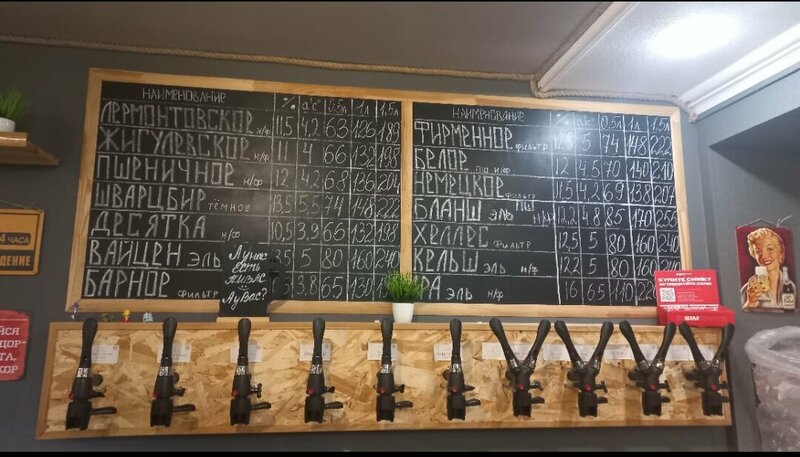 НАИМЕНОВАНИЕ % alc° 0.5л 1л 1.5л
ЛЕРМОНТОВСКОЕ н/ф 11,5 4,2 63 126 189
ЖИГУЛЕВСКОЕ н/ф 11 4 66 132 198
ПШЕНИЧНОЕ н/ф 12 4,2 68 136 204
ШВАРЦБИР тёмное 13,5 5,5 74 148 222
ДЕСЯТКА н/ф 10,5 3,9 65 130 195
ВАЙЦЕН эль 5 80 160 240
БАРНОЕ фильтр 3.8 65 130
А у нас
есть
А у Вас?
НАИМЕНОВАНИЕ % alc° 0.5л 1л 1.5л
ФИРМЕННОЕ фильтр 12,5 5 74 148 222
БЕЛОЕ пш н/ф 12 4,5 70 140 210
НЕМЕЦКОЕ фильтр 11,5 4,2 69 138 207
БЛАНШ эль н/ф 4,8 85 170 255
ХЕЛЛЕС фильтр 12,5 5 80 160 240
КЕЛЬШ эль н/ф 12 5 80 160 240
эль н/ф 16 65 130
4 ЧАСА
КУПИТЕ СИМКУ
SIM